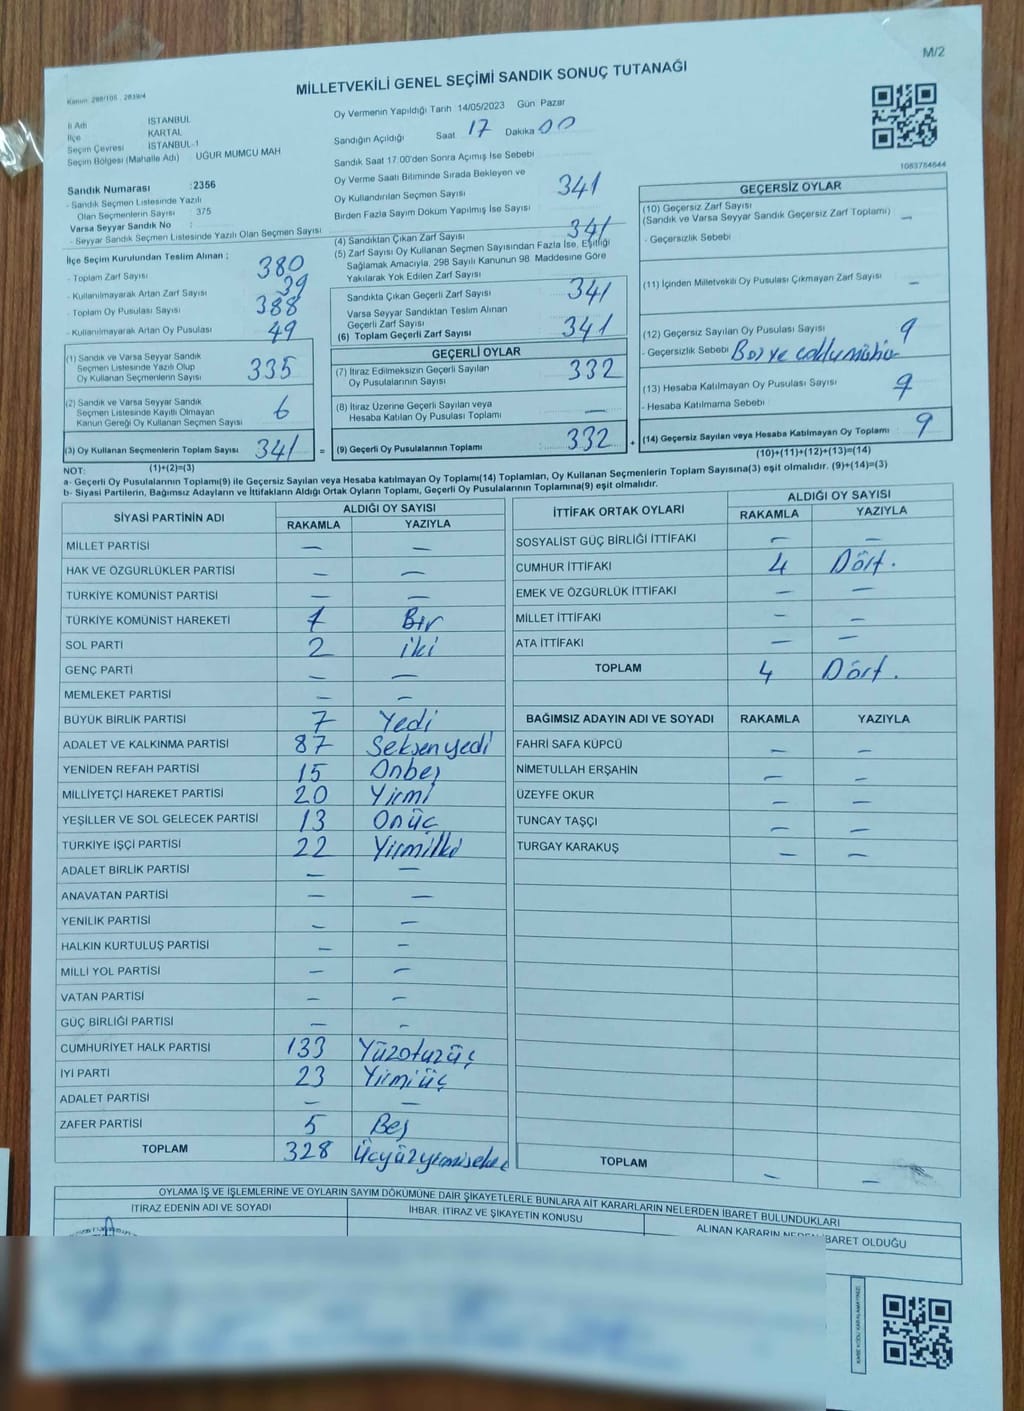 M/2
MİLLETVEKİLİ GENEL SEÇİMİ SANDIK SONUÇ TUTANAĞI
İl Adı İSTANBUL
İlçe KARTAL
Seçim Çevresi İSTANBUL-1
Seçim Bölgesi (Mahalle Adı) UĞUR MUMCU MAH
Sandık Numarası : 2356
- Sandık Seçmen Listesinde Yazılı
Olan Seçmenlerin Sayısı : 375
Varsa Seyyar Sandık No :
- Seyyar Sandık Seçmen Listesinde Yazılı Olan Seçmen Sayısı
İlçe Seçim Kurulundan Teslim Alınan ;
- Toplam Zarf Sayısı 380
- Kullanılmayarak Artan Zarf Sayısı 39
- Toplam Oy Pusulası Sayısı 388
- Kullanılmayarak Artan Oy Pusulası 49
(1) Sandık ve Varsa Seyyar Sandık
Seçmen Listesinde Yazılı Olup
Oy Kullanan Seçmenlerin Sayısı 335
(2) Sandık ve Varsa Seyyar Sandık
Seçmen Listesinde Kayıtlı Olmayan
Kanun Gereği Oy Kullanan Seçmen Sayısı 6
(3) Oy Kullanan Seçmenlerin Toplam Sayısı 341 =
(1)+(2)=(3)
Oy Vermenin Yapıldığı Tarih 14/05/2023 Gün Pazar
Sandığın Açıldığı Saat 17 Dakika 00
Sandık Saat 17.00'den Sonra Açımış İse Sebebi
Oy Verme Saati Bitiminde Sırada Bekleyen ve
Oy Kullandırılan Seçmen Sayısı 341
Birden Fazla Sayım Döküm Yapılmış İse Sayısı
(4) Sandıktan Çıkan Zarf Sayısı 341
(5) Zarf Sayısı Oy Kullanan Seçmen Sayısından Fazla İse, Eşitliği
Sağlamak Amacıyla, 298 Sayılı Kanunun 98. Maddesine Göre
Yakılarak Yok Edilen Zarf Sayısı
Sandıkta Çıkan Geçerli Zarf Sayısı 341
Varsa Seyyar Sandıktan Teslim Alınan
Geçerli Zarf Sayısı
(6) Toplam Geçerli Zarf Sayısı 341
GEÇERLİ OYLAR
(7) İtiraz Edilmeksizin Geçerli Sayılan
Oy Pusulalarının Sayısı 332
(8) İtiraz Üzerine Geçerli Sayılan veya
Hesaba Katılan Oy Pusulası Toplamı —
(9) Geçerli Oy Pusulalarının Toplamı 332 +
1083784644
GEÇERSİZ OYLAR
(10) Geçersiz Zarf Sayısı
(Sandık ve Varsa Seyyar Sandık Geçersiz Zarf Toplamı) —
- Geçersizlik Sebebi
(11) İçinden Milletvekili Oy Pusulası Çıkmayan Zarf Sayısı —
(12) Geçersiz Sayılan Oy Pusulası Sayısı 9
- Geçersizlik Sebebi Boş ve
(13) Hesaba Katılmayan Oy Pusulası Sayısı
- Hesaba Katılmama Sebebi
(14) Geçersiz Sayılan veya Hesaba Katılmayan Oy Toplamı 9
(10)+(11)+(12)+(13)=(14)
NOT:
a- Geçerli Oy Pusulalarının Toplamı(9) ile Geçersiz Sayılan veya Hesaba katılmayan Oy Toplamı(14) Toplamları, Oy Kullanan Seçmenlerin Toplam Sayısına(3) eşit olmalıdır. (9)+(14)=(3)
b- Siyasi Partilerin, Bağımsız Adayların ve İttifakların Aldığı Ortak Oyların Toplamı, Geçerli Oy Pusulalarının Toplamına(9) eşit olmalıdır.
SİYASİ PARTİNİN ADI ALDIĞI OY SAYISI
RAKAMLA YAZIYLA
MİLLET PARTİSİ — —
HAK VE ÖZGÜRLÜKLER PARTİSİ — —
TÜRKİYE KOMÜNİST PARTİSİ — —
TÜRKİYE KOMÜNİST HAREKETİ 1 Bir
SOL PARTİ 2 iki
GENÇ PARTİ — —
MEMLEKET PARTİSİ — —
BÜYÜK BİRLİK PARTİSİ 7 Yedi
ADALET VE KALKINMA PARTİSİ 87 Seksenyedi
YENİDEN REFAH PARTİSİ 15 Onbeş
MİLLİYETÇİ HAREKET PARTİSİ 20 Yirmi
YEŞİLLER VE SOL GELECEK PARTİSİ 13 Onüç
TÜRKİYE İŞÇİ PARTİSİ 22 Yirmiiki
ADALET BİRLİK PARTİSİ — —
ANAVATAN PARTİSİ — —
YENİLİK PARTİSİ — —
HALKIN KURTULUŞ PARTİSİ — —
MİLLİ YOL PARTİSİ — —
VATAN PARTİSİ — —
GÜÇ BİRLİĞİ PARTİSİ — —
CUMHURİYET HALK PARTİSİ 133 Yüzotuzüç
İYİ PARTİ 23 Yirmiüç
ADALET PARTİSİ — —
ZAFER PARTİSİ 5 Beş
TOPLAM 328 Üçyüzyirmisekiz
İTTİFAK ORTAK OYLARI ALDIĞI OY SAYISI
RAKAMLA YAZIYLA
SOSYALİST GÜÇ BİRLİĞİ İTTİFAKI — —
CUMHUR İTTİFAKI 4 Dört.
EMEK VE ÖZGÜRLÜK İTTİFAKI — —
MİLLET İTTİFAKI — —
ATA İTTİFAKI — —
TOPLAM 4 Dört.
BAĞIMSIZ ADAYIN ADI VE SOYADI RAKAMLA YAZIYLA
FAHRİ SAFA KÜPCÜ — —
NİMETULLAH ERŞAHİN — —
ÜZEYFE OKUR — —
TUNCAY TAŞÇI — —
TURGAY KARAKUŞ — —
TOPLAM — —
OYLAMA İŞ VE İŞLEMLERİNE VE OYLARIN SAYIM DÖKÜMÜNE DAİR ŞİKAYETLERLE BUNLARA AİT KARARLARIN NELERDEN İBARET BULUNDUKLARI
İTİRAZ EDENİN ADI VE SOYADI
İHBAR, İTİRAZ VE ŞİKAYETİN KONUSU
ALINAN KARARIN NEDEN İBARET OLDUĞU